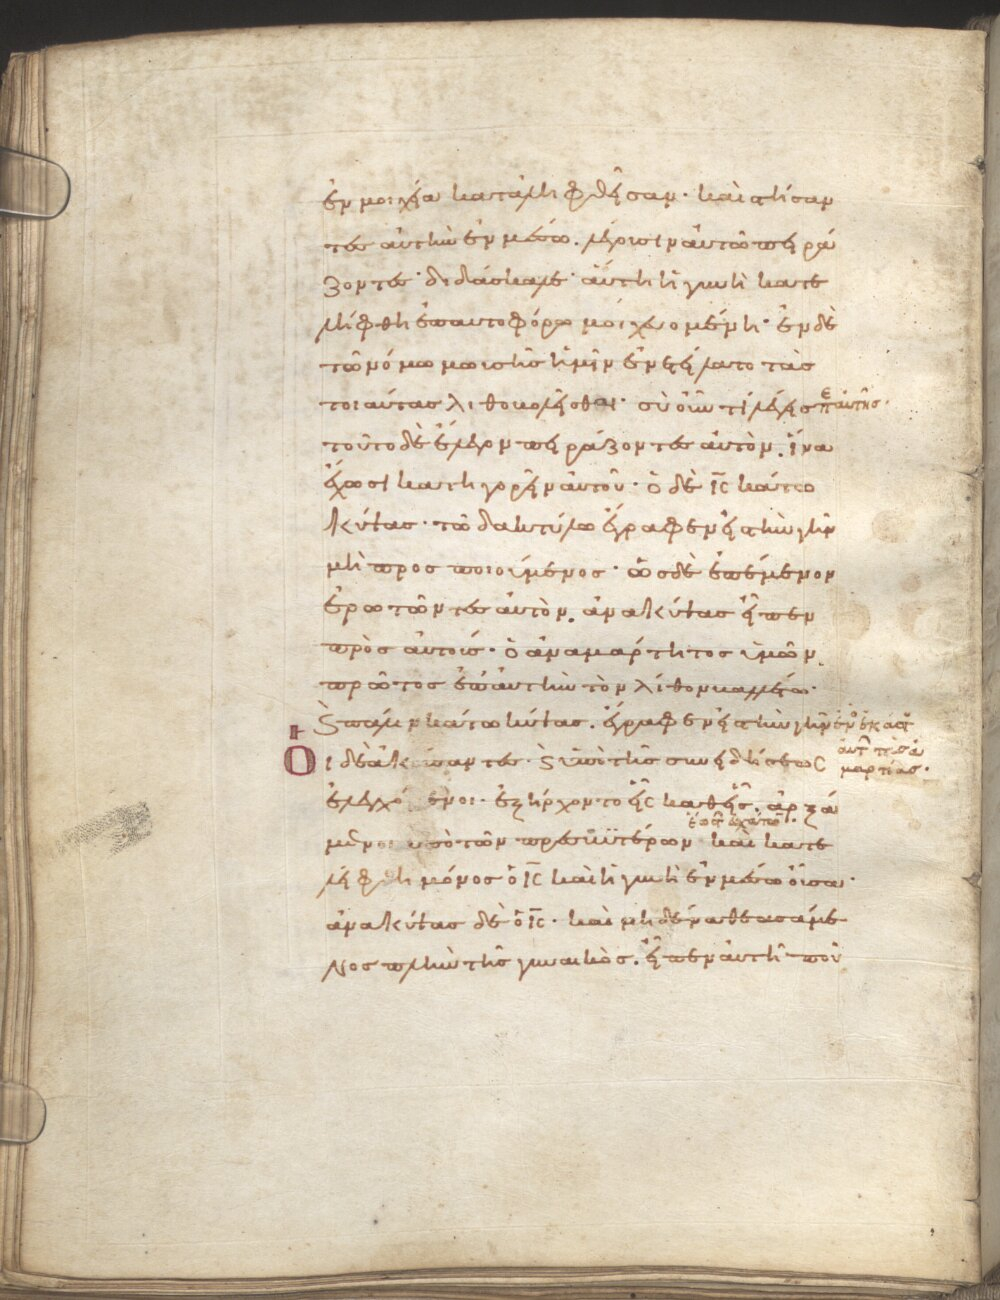 ἐν μοιχεία καταληφθεῖσαν· καὶ στήσαν
τες αὐτὴν ἐν μέσω. λέγουσιν αὐτῶ πειρά
ζοντες· διδάσκαλε· αὕτη ἡ γυνὴ κατε
λήφθη ἐπαυτοφόρω μοιχευομένη· ἐν δὲ
τῶ νόμω μωϋσῆς ἡμῖν ἐνετείλατο τὰς
τοιαύτας λιθοβολεῖσθαι· σὺ οὖν τί λέγεις περὶ αὐτῆς·
τοῦτο δὲ ἔλεγον πειράζοντες αὐτὸν. ἵνα
ἔχωσι κατηγορεῖν αὐτοῦ· ὁ δὲ ις κάτω
κύψας· τῶ δακτύλω ἔγραφεν εἰς τὴν γῆν
μὴ προσποιούμενος· ὡς δὲ ἐπέμενον
ἐρωτῶντες αὐτὸν. ἀνακύψας εἶπεν
πρὸς αὐτούς· ὁ ἀναμάρτητος ὑμῶν
πρῶτος ἐπ αὐτὴν τὸν λίθον βαλλέτω·
Ϗ πάλιν κάτω κύψας. ἔγραφεν εἰς τὴν γῆν ἑνὸς ἑκάστου
αὐτῶν τὰς ἁ
μαρτίας·
Οἱ δὲ ἀκούσαντες· ϗ ὑπὸ τῆς συνειδήσεως
ἐλεγχόμενοι· ἐξήρχοντο εἷς καθεῖς. ἀρξά
ἕως τῶν ἐσχάτων·
μενοι ἀπὸ τῶν πρεσβυτέρων καὶ κατε
λείφθη μόνος ὁ ις καὶ ἡ γυνὴ ἐν μέσω οὖσα·
ἀνακύψας δὲ ὁ ις· καὶ μηδένα θεασάμε
νος πλὴν τῆς γυναικὸς. εἶπεν αὐτῆ ποῦ